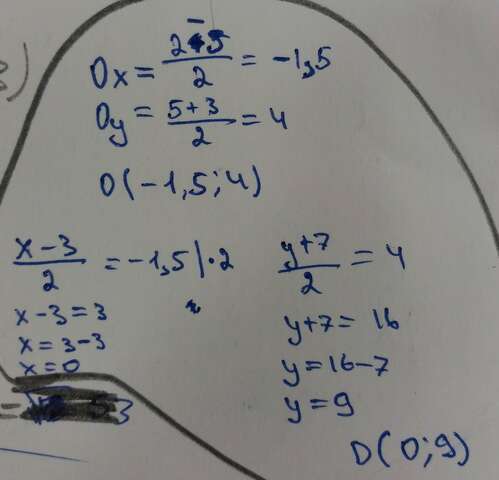 Ox = 2-5/2 = -1,5
Oy = 5+3/2 = 4
O(-1,5;4)
x-3/2 = -1,5 |·2
x-3=3
x=3-3
x=0
y+7/2 = 4
y+7= 16
y=16-7
y=9
D(0;9)